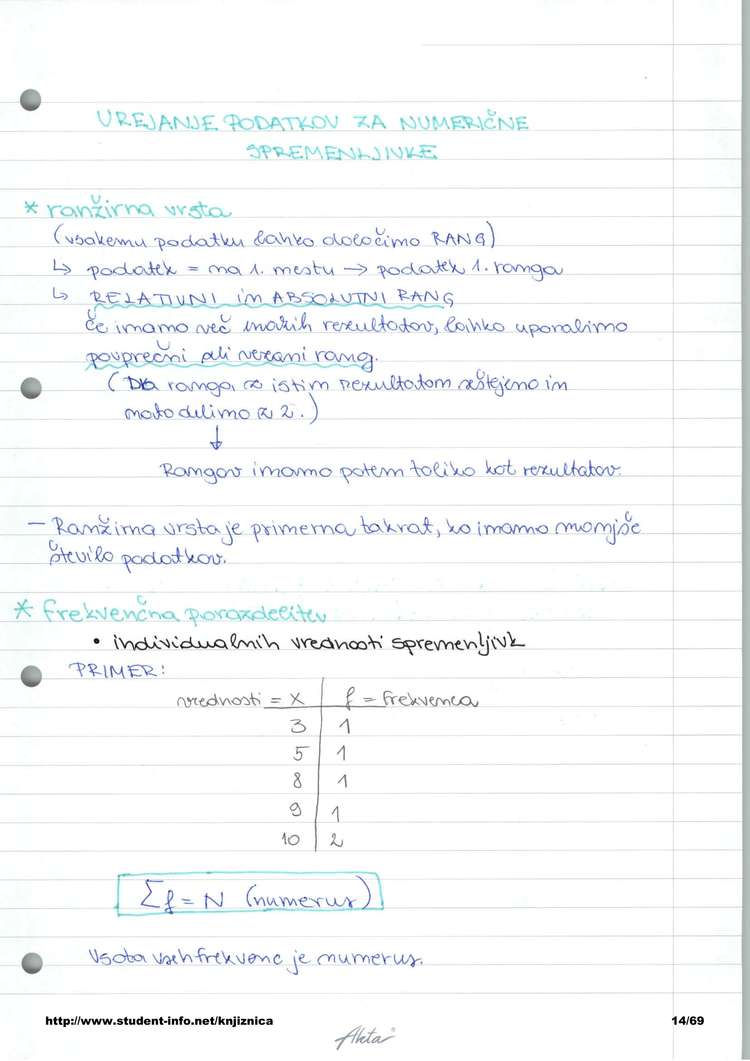 UREJANJE PODATKOV ZA NUMERIČNE
SPREMENLJIVKE
* ranžirna vrsta
(vsakemu podatku lahko določimo RANG)
↳ podatek = na 1. mestu → podatek 1. ranga
↳ RELATIVNI in ABSOLUTNI RANG
Če imamo več enakih rezultatov, lahko uporabimo
povprečni ali vezani rang.
(Dva ranga z istim rezultatom seštejemo in
nato delimo z 2.)
↓
Rangov imamo potem toliko kot rezultatov.
- Ranžirna vrsta je primerna takrat, ko imamo manjše
število podatkov.
* frekvenčna porazdelitev
• individualnih vrednosti spremenljivk
PRIMER:
vrednosti = X f = frekvenca
3 1
5 1
8 1
9 1
10 2
Σf = N (numerus)
Vsota vseh frekvenc je numerus.
http://www.student-info.net/knjiznica 14/69
Akta